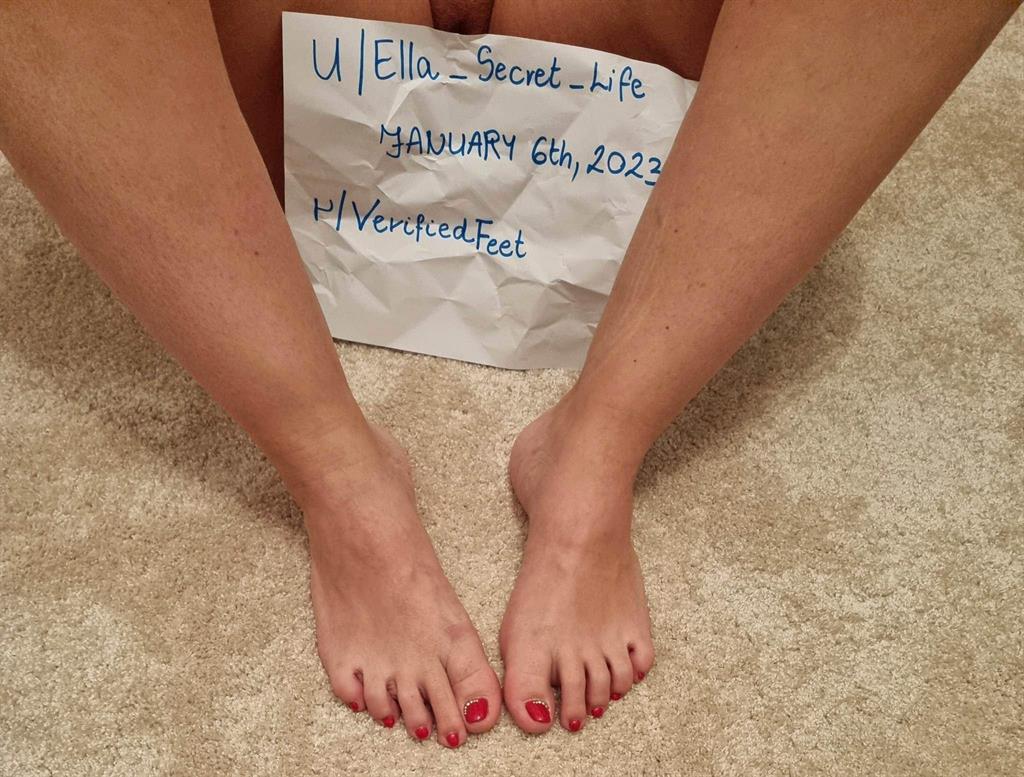 U/Ella_Secret_Life
JANUARY 6th, 2023
r/VerifiedFeet